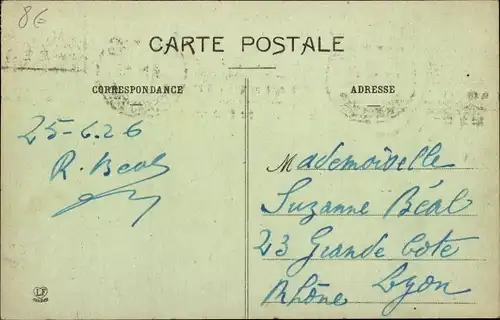 8€
CARTE POSTALE
CORRESPONDANCE
ADRESSE
25-6.26
R. Béal
Mademoiselle
Suzanne Béal
23 Grande Cote
Lyon
Rhône